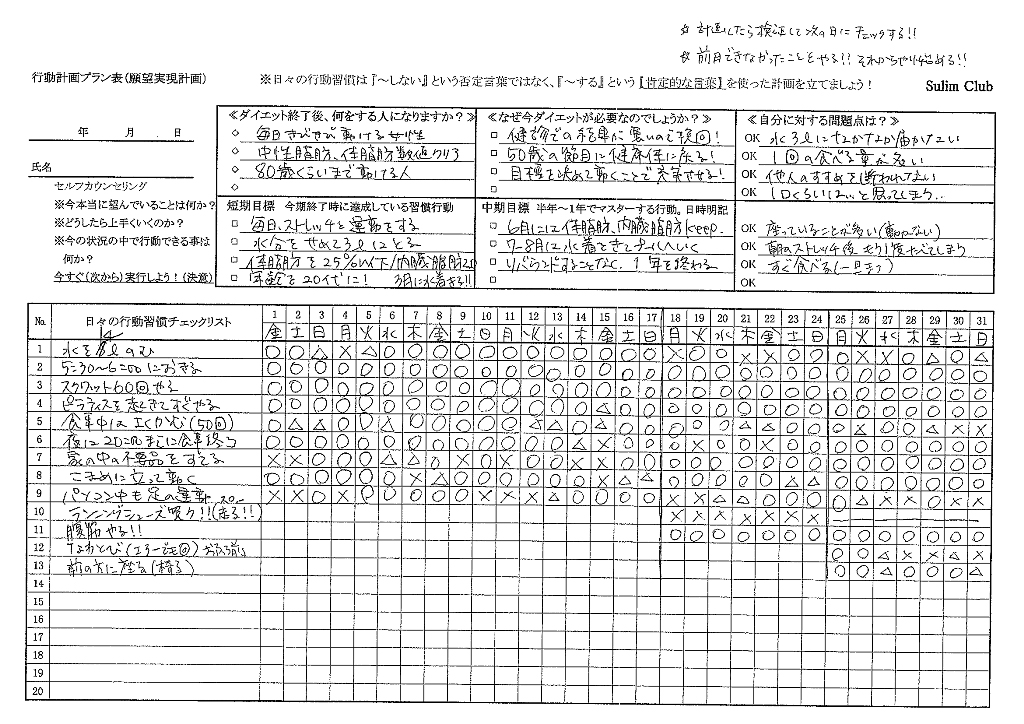 ※計画したら検証して次の日にチェックする!!
※前月できなかったことをやる!! それからやり始める!!
行動計画プラン表(願望実現計画)
※日々の行動習慣は『〜しない』という否定言葉ではなく、『〜する』という【肯定的な言葉】を使った計画を立てましょう!
Sulim Club
年 月 日
氏名
セルフカウンセリング
※今本当に望んでいることは何か?
※どうしたら上手くいくのか?
※今の状況の中で行動できる事は
何か?
今すぐ(次から)実行しよう!(決意)
≪ダイエット終了後、何をする人になりますか?≫
◇ 毎日きびきび動ける女性
◇ 中性脂肪、体脂肪数値クリア
◇ 80歳くらいまで動ける人
◇
≪なぜ今ダイエットが必要なのでしょうか?≫
□ 健診での結果に悪いので挽回!
□ 50歳の節目に健康体に戻る!
□ 目標を決めて動くことで充実させる!
□
≪自分に対する問題点は?≫
OK 水3ℓになかなか届かない
OK 1回の食べる量が多い
OK 他人のすすめを断われない
OK 1口くらいはいいと思ってしまう..
短期目標 今期終了時に達成している習慣行動
□ 毎日、ストレッチと運動をする
□ 水分をせめて3ℓほどとる
□ 体脂肪を25%以下/内臓脂肪
□ 年齢を20代に! 8月に水着きる!!
中期目標 半年〜1年でマスターする行動。日時明記
□ 6月には体脂肪、内臓脂肪keep.
□ 7-8月に水着をきてプールへいく
□ リバウンドすることなく、1年を終わる
□
OK 座っていることが多い(動かない)
OK 朝のストレッチ後、もう1度ねてしまう
OK すぐ食べる(一旦まて)
OK
№ 日々の行動習慣チェックリスト 1 2 3 4 5 6 7 8 9 10 11 12 13 14 15 16 17 18 19 20 21 22 23 24 25 26 27 28 29 30 31
金 土 日 月 火 水 木 金 土 日 月 火 水 木 金 土 日 月 火 水 木 金 土 日 月 火 水 木 金 土 日
1 水を3ℓのむ
2 5:30〜6:00におきる
3 スクワット60回やる
4 ピラティスを起きてすぐやる
5 食事中はよくかむ(50回)
6 夜は20:00までに食事終う
7 家の中の不要品をすてる
8 こまめに立って動く
9 パソコン中も足の運動
10 ランニングシューズ吸う!!(走る!!)
11 腹筋やる!!
12 なわとび(エラーでも回) お風呂前に
13 前の方に座る(精る)
14
15
16
17
18
19
20